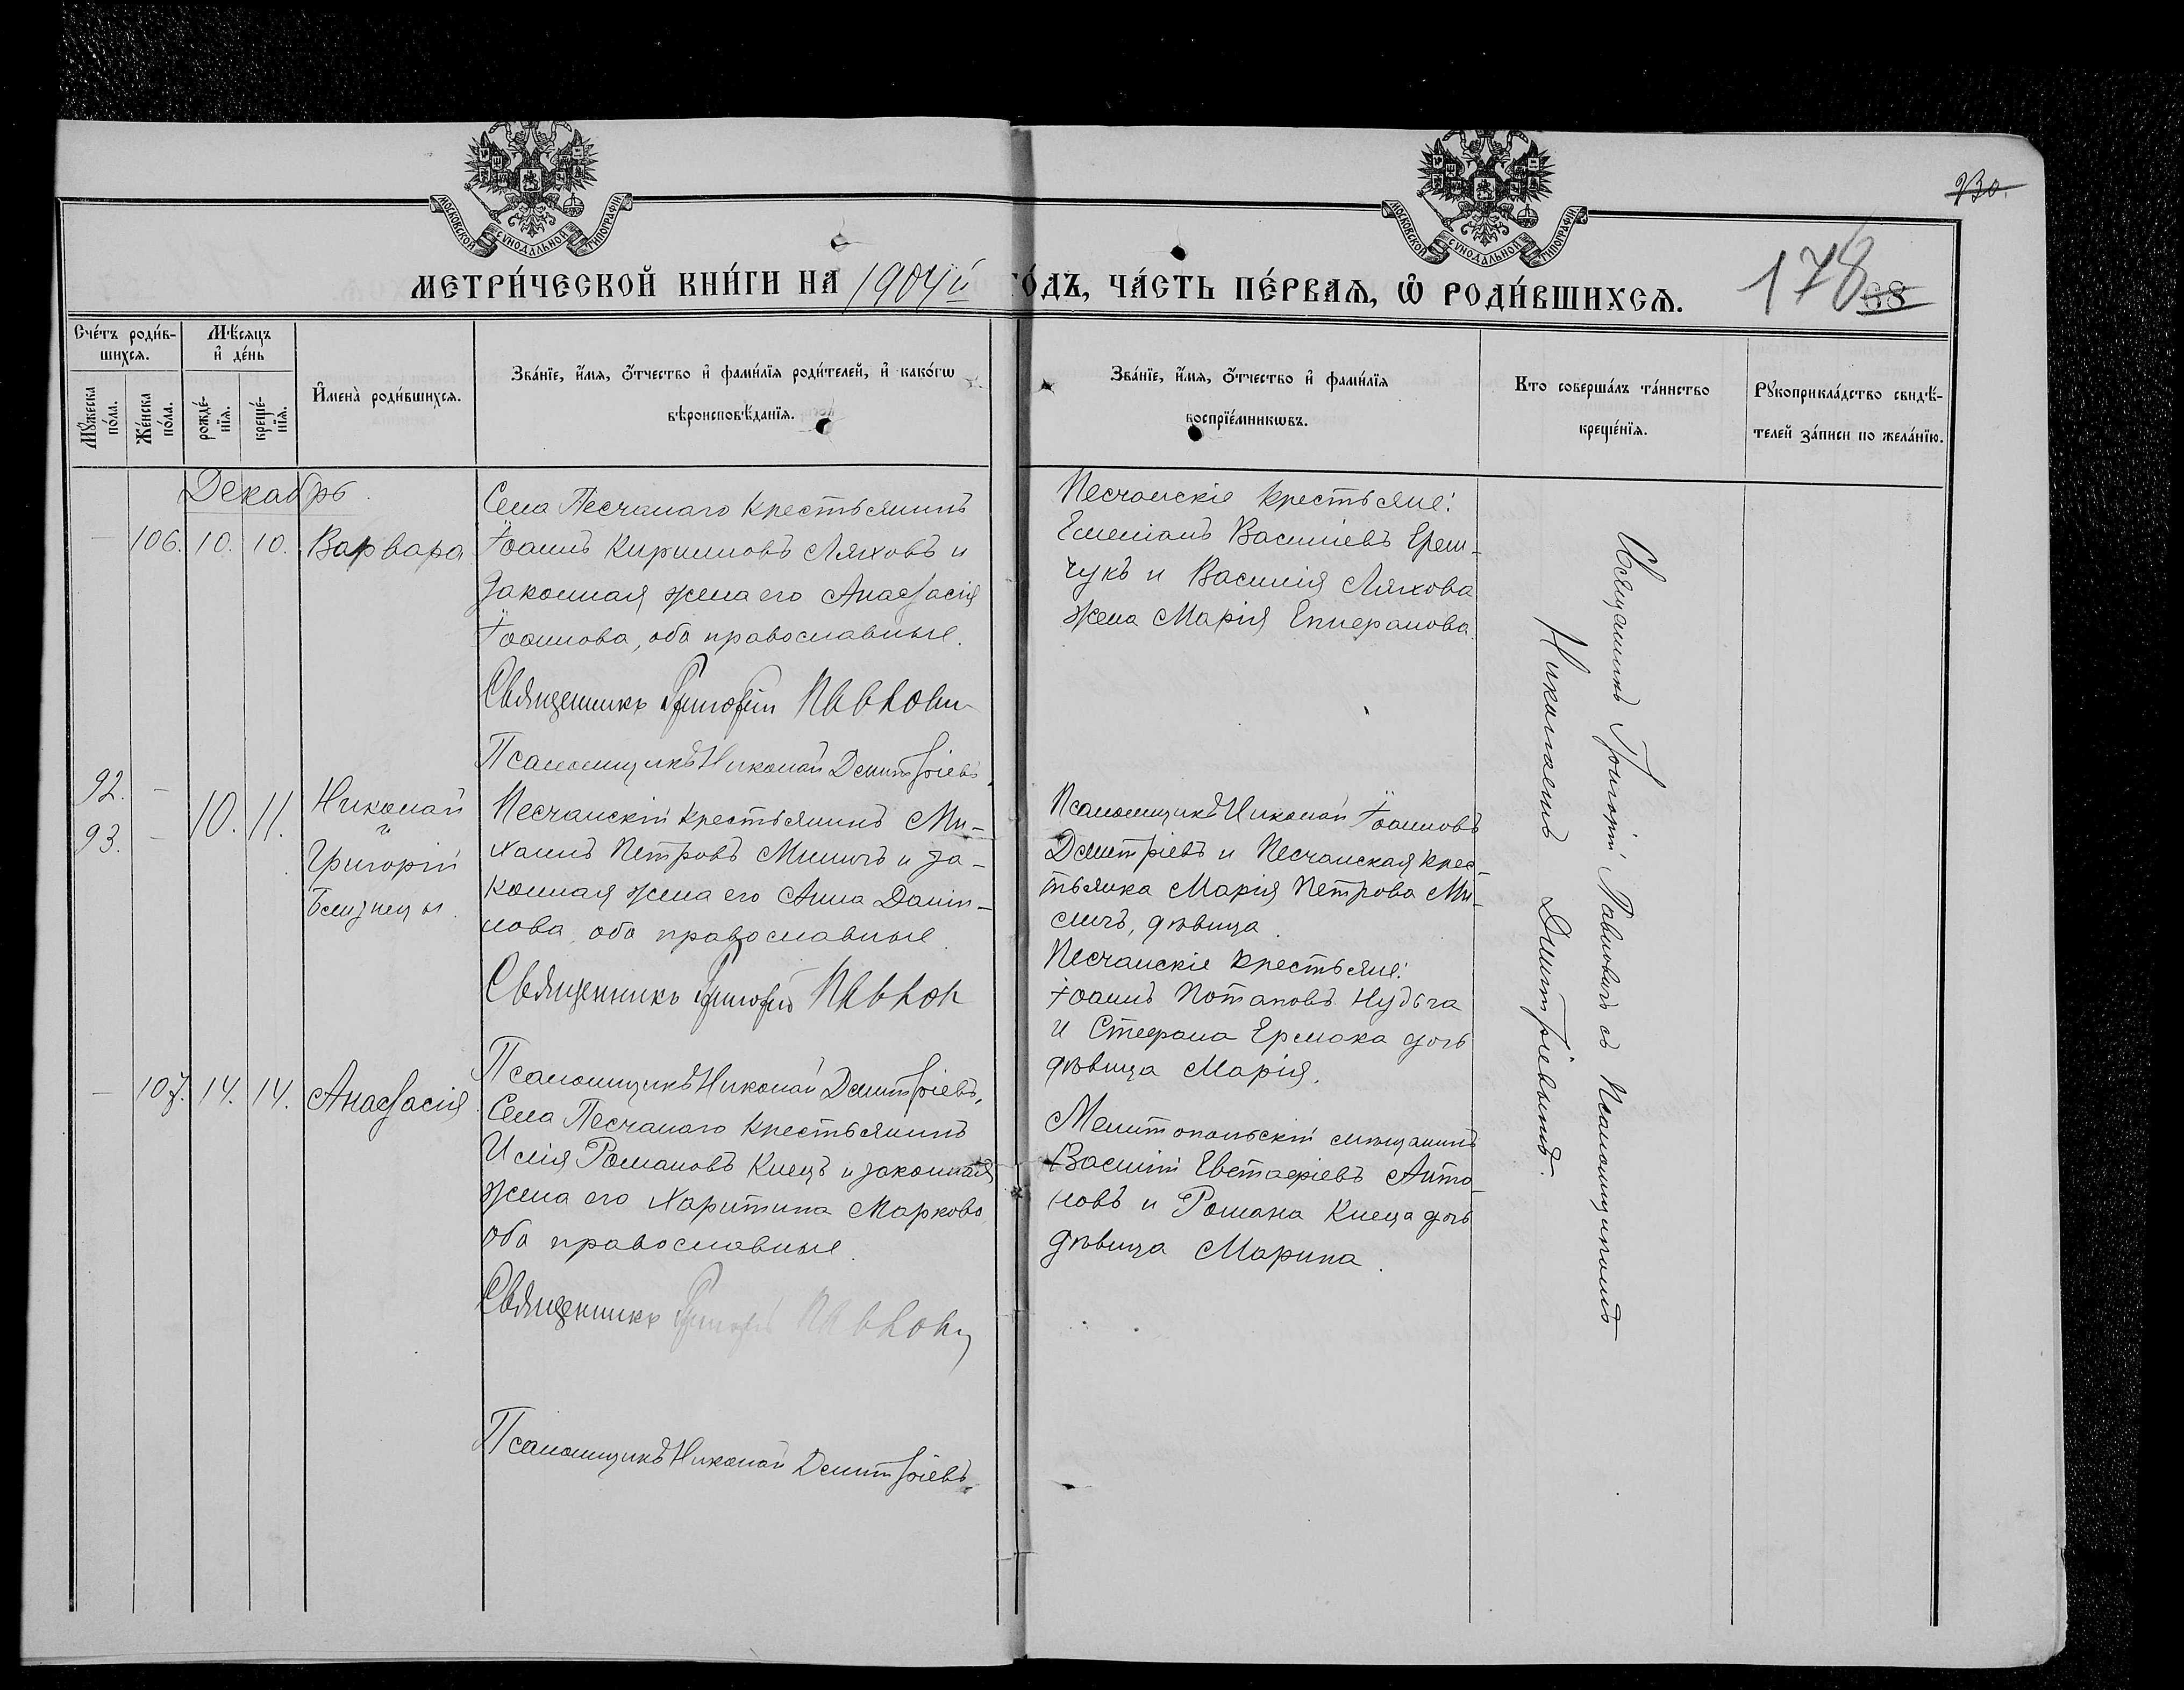 МОСКОВСКОЙ СѴНОДАЛЬНОЙ ТИПОГРАФІИ
МОСКОВСКОЙ СѴНОДАЛЬНОЙ ТИПОГРАФІИ
230.
МЕТРИ́ЧЕСКОЙ КНИ́ГИ НА 1904й ГО́ДЪ, ЧА́СТЬ ПЕ́РВАѦ, Ѡ҆ РОДИ́ВШИХСѦ.
178
68
Сче́тъ роди́в-
шихсѧ.
Мꙋ́жеска
по́ла.
Же́нска
по́ла.
Мѣ́сѧцъ
и҆ де́нь
рожде́-
нїѧ.
креще́-
нїѧ.
И҆мена̀ роди́вшихсѧ.
Зва́нїе, и҆́мѧ, ѻ҆́тчество и҆ фами́лїѧ роди́телей, и҆ како́гѡ
вѣроисповѣ́данїѧ.
Зва́нїе, и҆́мѧ, ѻ҆́тчество и҆ фами́лїѧ
воспрїе́мникѡвъ.
Кто соверша́лъ та́инство
креще́нїѧ.
Рꙋкоприкла́дство свидѣ́-
телей за́писи по жела́нїю.
Декабрь.
— 106. 10. 10. Варвара
Села Песчанаго крестьянинъ
Іоаннъ Кирилловъ Ляховъ и
законная жена его Анастасія
Іоаннова, оба православные.
Священникъ Григорій Павлович
Псаломщикъ Николай Дмитріевъ.
Песчанскіе крестьяне:
Емеліанъ Василіевъ Ерем-
чукъ и Василія Ляхова
жена Марія Епифанова.
92. —
93. —
10. 11.
Николай
и
Григорій
Близнецы.
Песчанскій крестьянинъ Ми-
хаилъ Петровъ Мисичъ и за-
конная жена его Анна Даніи-
лова, оба православные.
Священникъ Григорій Павлов
Псаломщикъ Николай Дмитріевъ.
Псаломщикъ Николай Іоанновъ
Дмитріевъ и Песчанская крес-
тьянка Марія Петрова Ми-
сичъ, дѣвица.
Песчанскіе крестьяне:
Іоаннъ Потаповъ Нудьга
и Стефана Ермака дочь
дѣвица Марія.
— 107. 14. 14. Анастасія
Села Песчанаго крестьянинъ
Илія Романовъ Клецъ и законная
жена его Харитина Маркова,
оба православные.
Священникъ Григорій Павлович
Псаломщикъ Николай Дмитріевъ.
Мелитопольскій мѣщанинъ
Василій Евстафіевъ Анто-
новъ и Романа Клеца дочь
дѣвица Марина.
Священникъ Григорій Павловичъ съ Псаломщикомъ
Николаемъ Дмитріевымъ.